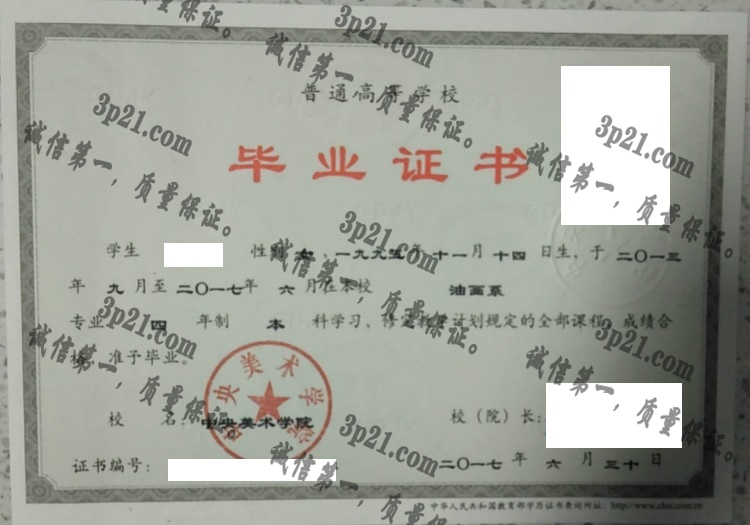 普通高等学校
毕业证书
学生 性别 女，一九九五年 十一月 十四日生，于 二〇一三
年 九月至 二〇一七年 六月在本校 油画系
专业 四 年制 本 科学习，修完教学计划规定的全部课程，成绩合
格，准予毕业。
校 名：中央美术学院
校（院）长：
证书编号：
二〇一七 年 六 月 三十日
中华人民共和国教育部学历证书查询网址：http://www.chsi.com.cn
中央美术学院
3p21.com
诚信第一，质量保证。
3p21.com
诚信第一，质量保证。
3p21.com
诚信第一，质量保证。
3p21.com
诚信第一，质量保证。
3p21.com
诚信第一，质量保证。
3p21.com
诚信第一，质量保证。
3p21.com
诚信第一，质量保证。